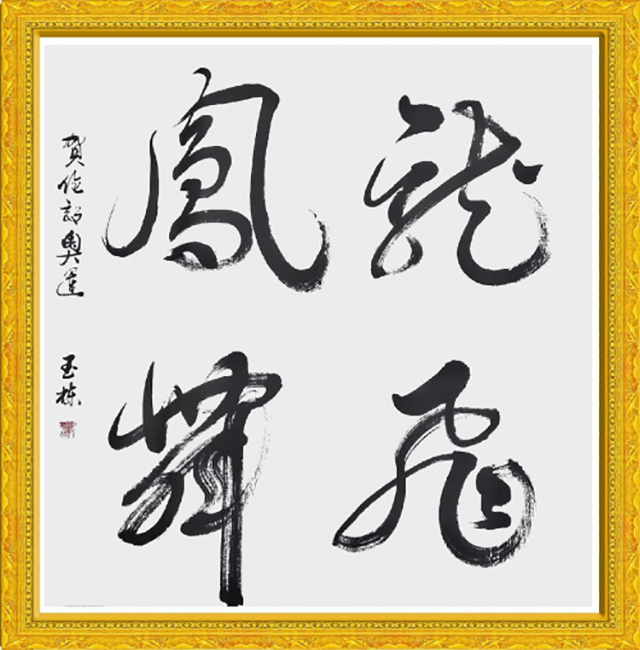 龍飛
鳳舞
賀倫敦奧運
玉棟